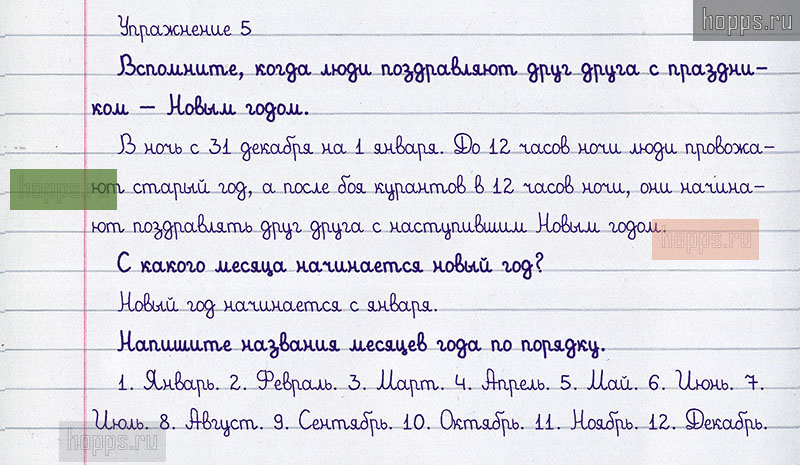 hopps.ru
Упражнение 5
Вспомните, когда люди поздравляют друг друга с праздни-
ком — Новым годом.
В ночь с 31 декабря на 1 января. До 12 часов ночи люди провожа-
ют старый год, а после боя курантов в 12 часов ночи, они начина-
hopps.ru
ют поздравлять друг друга с наступившим Новым годом.
hopps.ru
С какого месяца начинается новый год?
Новый год начинается с января.
Напишите названия месяцев года по порядку.
1. Январь. 2. Февраль. 3. Март. 4. Апрель. 5. Май. 6. Июнь. 7.
Июль. 8. Август. 9. Сентябрь. 10. Октябрь. 11. Ноябрь. 12. Декабрь.
hopps.ru